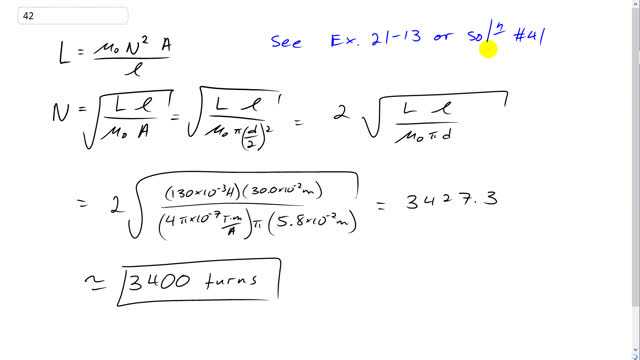 42
See Ex. 21-13 or sol'n #41
L = μ₀ N² A / l
N = √(L l / μ₀ A) = √(L l / μ₀ π (d/2)²) = 2 √(L l / μ₀ π d)
= 2 √((130×10⁻³H)(30.0×10⁻²m) / (4π×10⁻⁷ T·m/A) π (5.8×10⁻²m)) = 3427.3
≃ 3400 turns